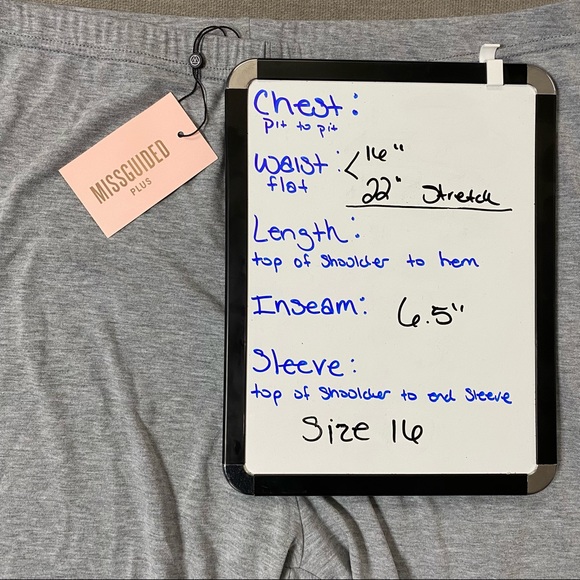 MISSGUIDED
PLUS
Chest:
pit to pit
Waist: 16"
flat 22" Stretch
Length:
top of Shoulder to hem
Inseam: 6.5"
Sleeve:
top of Shoulder to end Sleeve
Size 16